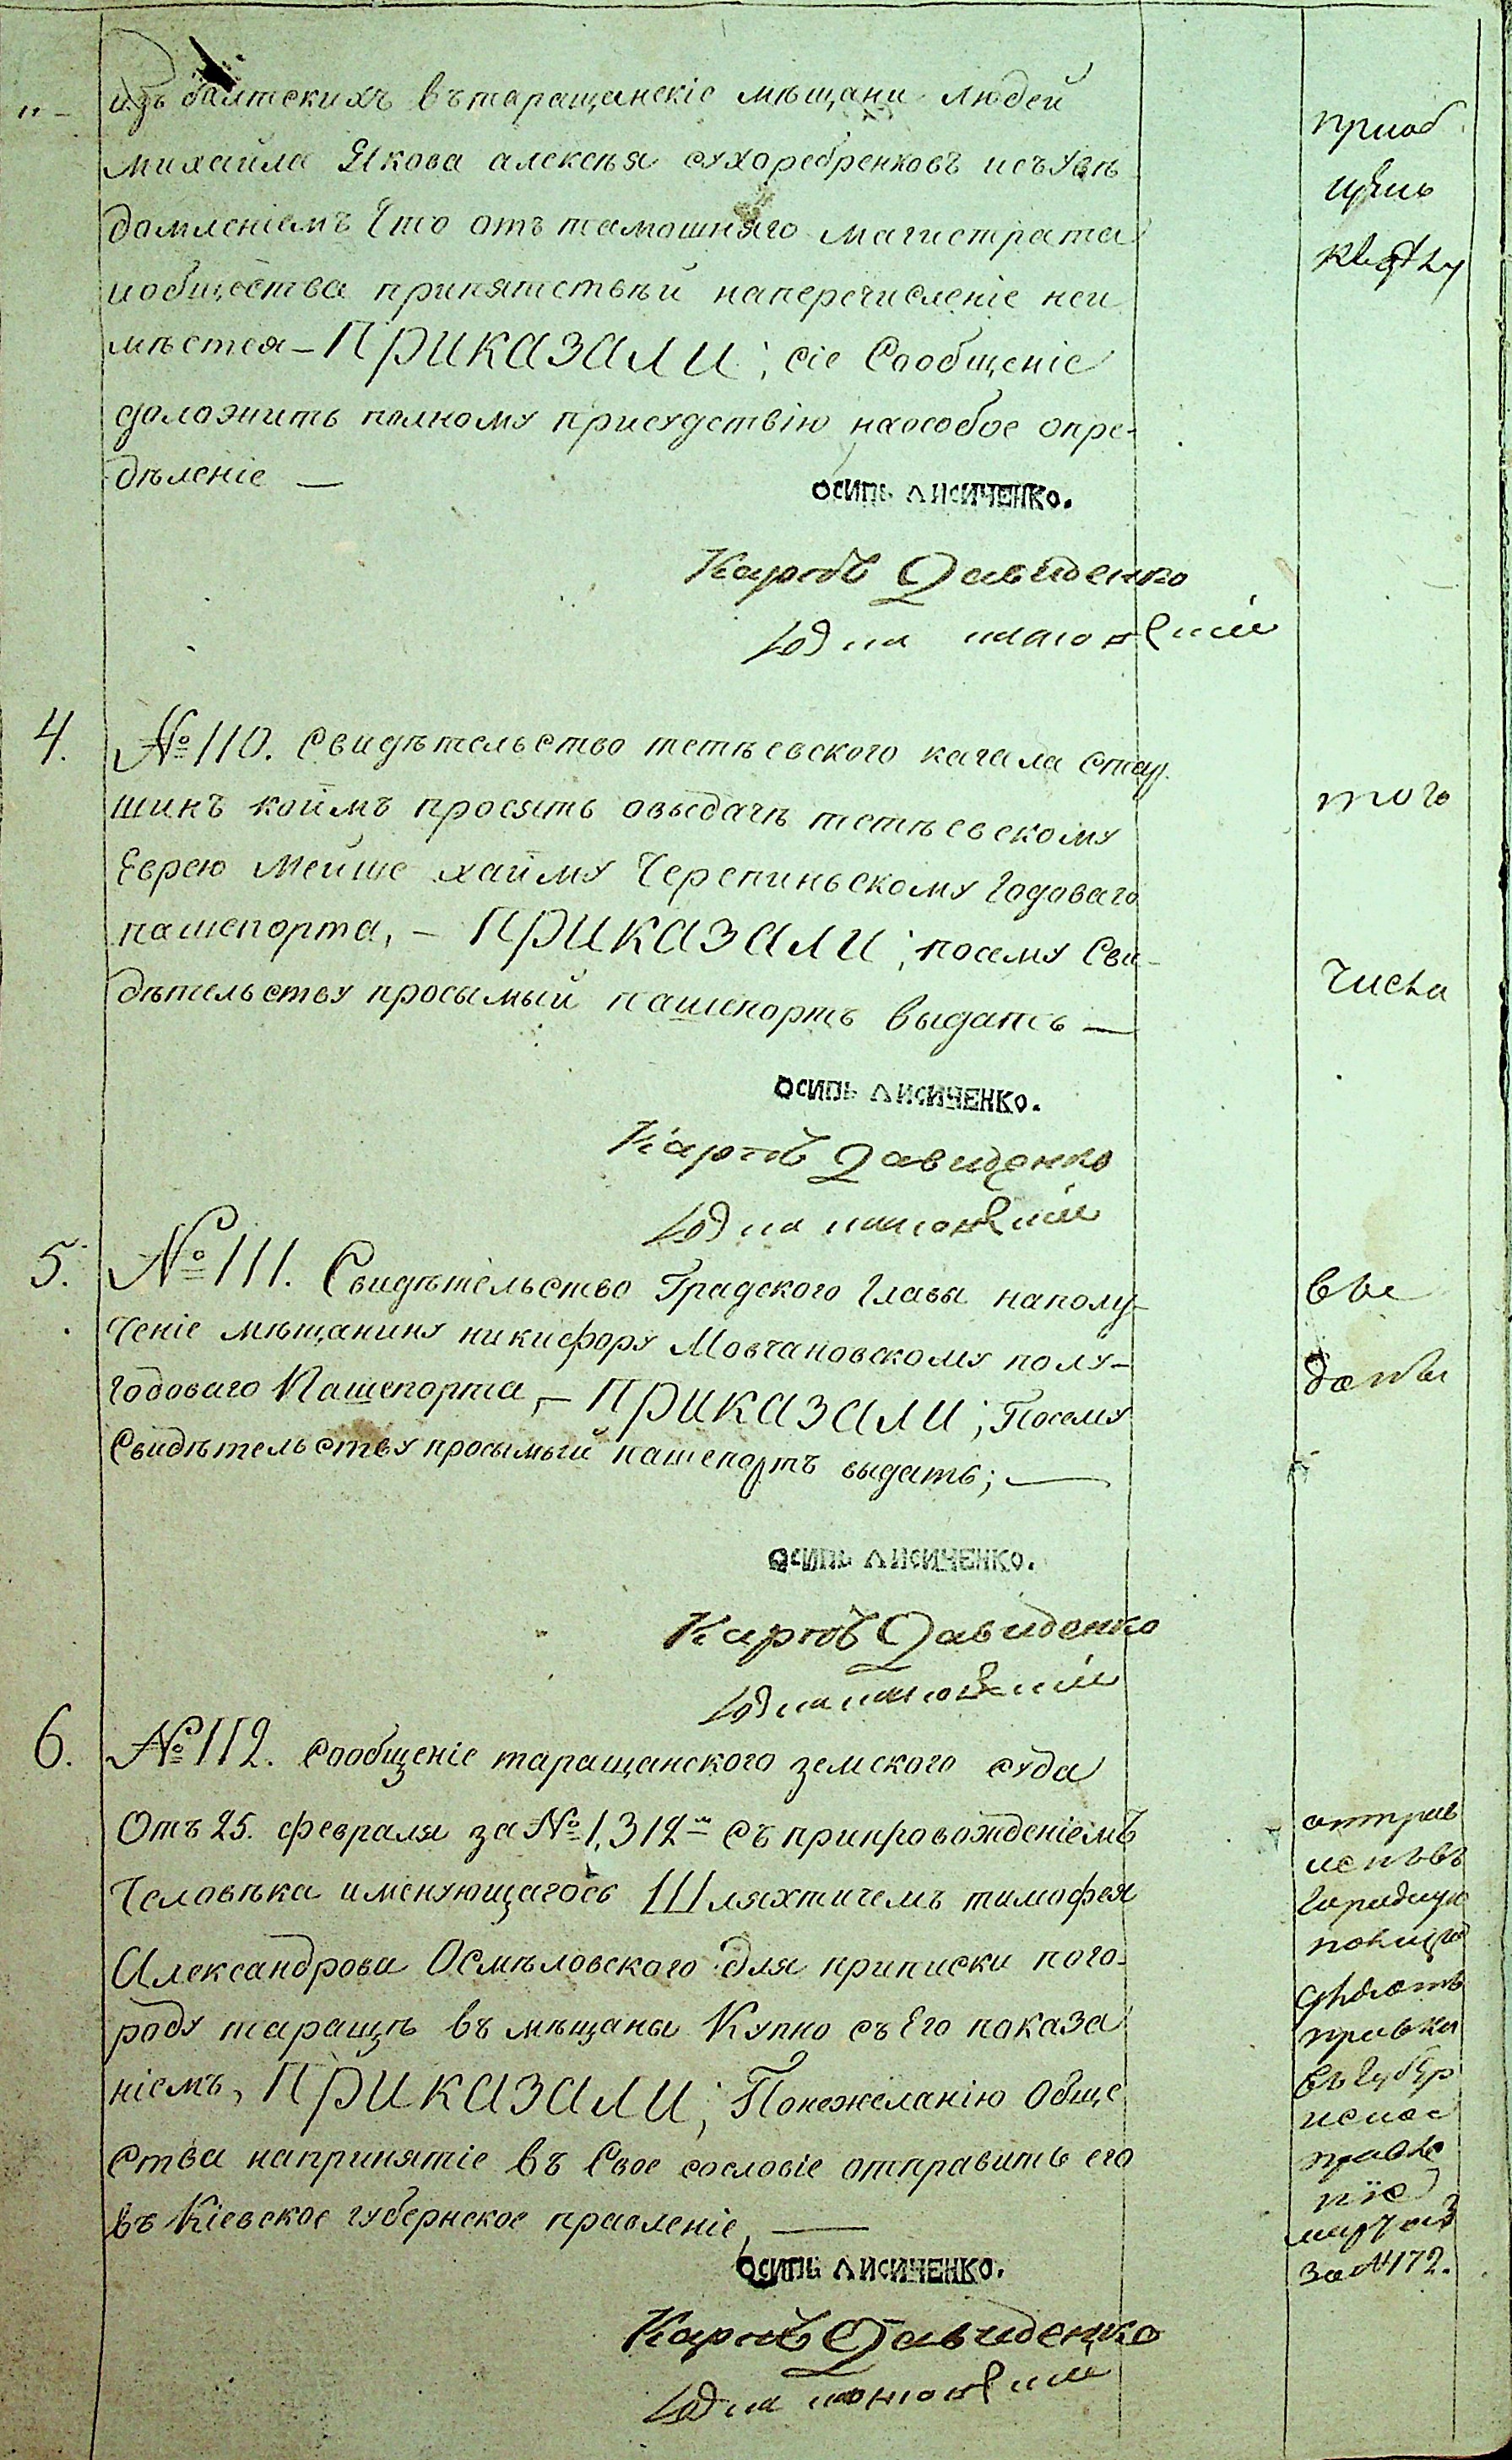 изъ балтскихъ въ таращанскіе мѣщани людей
михайла Якова алексѣя сухоребренковъ исъ увѣ
домленіемъ Что отъ тамошняго магистрата
иобщества припятствѣй наперечисленіе неи
мѣется – ПРИКАЗАЛИ; сіе Сообщеніе
доложить полному присудствію наособое опре-
дѣленіе —
приоб
щень
кдѣлу
ОСИПЬ ЛИСИЧЕНКО.
Карпъ Давиденко
4.
№ 110. Свидѣтельство тетѣевского кагала стар
шинъ коимъ просять овыдачѣ тетѣевскому
Еврею Мейше хайму Черепиньскому Годоваго
пашепорта, – ПРИКАЗАЛИ; посему Сви-
дѣтельству просымый пашепортъ выдать —
того
числа
ОСИПЬ ЛИСИЧЕНКО.
Карпъ Давиденко
5.
№ 111. Свидѣтельство Градского Главы наполу-
ченіе мѣщанину никифору Мовчановскому полу-
годоваго Пашепорта, – ПРИКАЗАЛИ; Посему
Свидѣтельству просымый пашепортъ выдать; —
вы
даны
ОСИПЬ ЛИСИЧЕНКО.
Карпъ Давиденко
6.
№ 112. Сообщеніе таращанского земского суда
Отъ 25. февраля за № 1,312м съ припровожденіемъ
Человѣка именующагось Шляхтичемъ тимофея
Александрова Осмѣловского для приписки пого-
роду таращѣ въ мѣщаны Купно съ Его показа
ніемъ, ПРИКАЗАЛИ; Понежеланію Обще
Ства напринятіе въ Свое сословіе отправить его
въ Кіевское губернское правленіе, —
отправ
ленъ въ
Городную
въ губер
правле
ніе
за № 172.
ОСИПЬ ЛИСИЧЕНКО.
Карпъ Давиденко